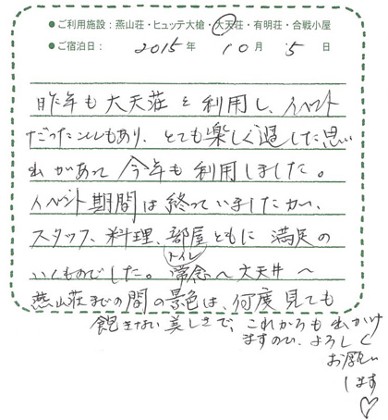 ●ご利用施設：燕山荘・ヒュッテ大槍・大天荘・有明荘・合戦小屋
●ご宿泊日： 2015年 10月 5日
昨年も大天荘を利用し、イベント
だったこともあり、とても楽しく過した思い
出があって今年も利用しました。
イベント期間は終っていましたが、
スタッフ、料理、部屋ともに満足の
トイレ
いくものでした。常念へ大天井へ
燕山荘までの間の景色は、何度見ても
飽きない美しさで、これからも出かけ
ますので、よろしく
お願い
します
♡